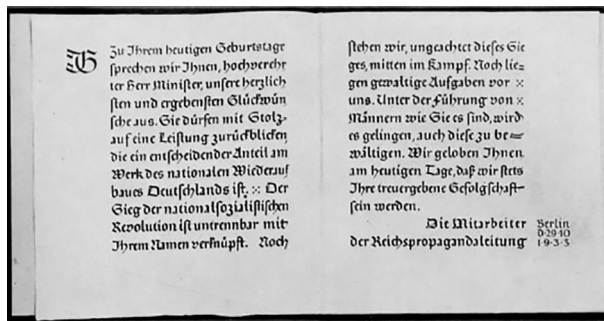 Zu Ihrem heutigen Geburtstage
sprechen wir Ihnen, hochverehr
ter Herr Minister, unsere herzlich
sten und ergebensten Glückwün
sche aus. Sie dürfen mit Stolz
auf eine Leistung zurückblicken,
die ein entscheidender Anteil am
Werk des nationalen Wiederauf
baues Deutschlands ist. Der
Sieg der nationalsozialistischen
Revolution ist untrennbar mit
Ihrem Namen verknüpft. Noch
stehen wir, ungeachtet dieses Sie
ges, mitten im Kampf. Noch lie=
gen gewaltige Aufgaben vor
uns. Unter der Führung von
Männern wie Sie es sind, wird
es gelingen, auch diese zu be=
wältigen. Wir geloben Ihnen
am heutigen Tage, daß wir stets
Ihre treuergebene Gefolgschaft
sein werden.
Die Mitarbeiter
der Reichspropagandaleitung
Berlin
d·29·10
1·9·3·3